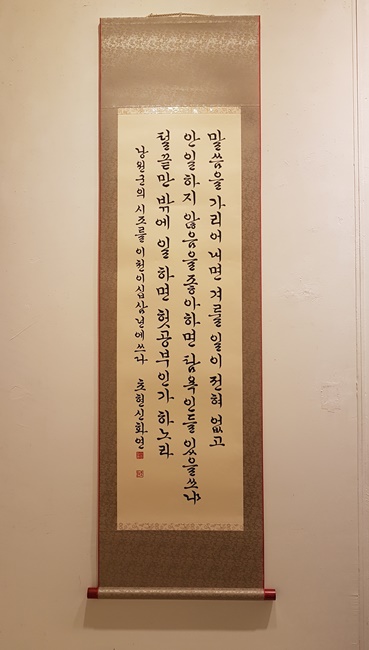 말씀을 가리어 내면 겨를 일이 전혀 없고
안 일 하지 않음을 좋아하면 탐욕인들 있을쏘냐
털끝만 밖에 일 하면 헛공부인가 하노라
낭원군의 시조를 이천이십삼년에 쓰다 초현 신화연